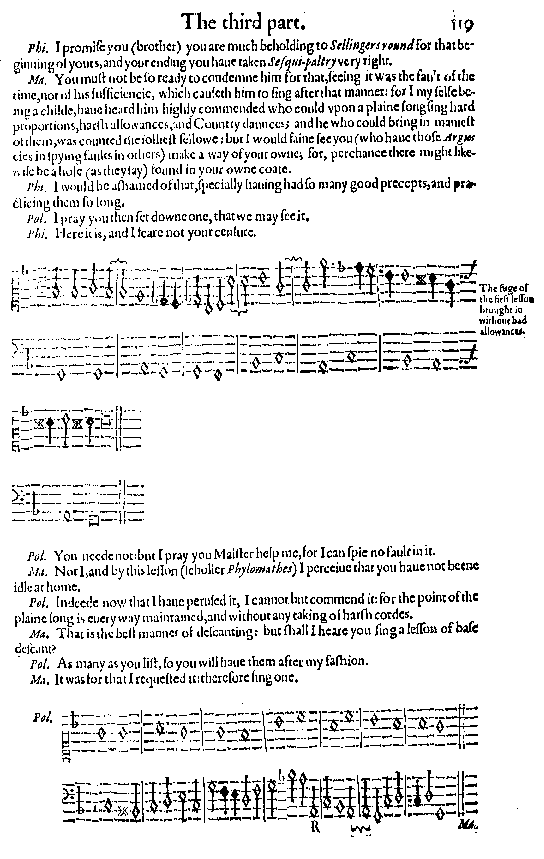 The third part. 119
Phi. I promiſe you (brother) you are much beholding to Sellingers round for that be-
ginning of yours, and your ending you haue taken Seſqui-paltry very right.
Ma. You muſt not be ſo ready to condemne him for that, ſeeing it was the fault of the
time, not of his ſufficiencie, which cauſeth him to ſing after that manner: for I my ſelfe be-
ing a childe, haue heard him highly commended who could vpon a plaine ſong ſing hard
proportions, harſh allowances, and Country daunces; and he who could bring in manieſt
of them, was counted the iollieſt fellowe: but I would faine ſee you (who haue thoſe Argus
eies in ſpying faults in others) make a way of your owne; for, perchance there might like-
wiſe be a hole (as they ſay) found in your owne coate.
Phi. I would be aſhamed of that, ſpecially hauing had ſo many good precepts, and pra-
cticing them ſo long.
Pol. I pray you then ſet downe one, that we may ſee it.
Phi. Here it is, and I feare not your cenſure.
The fuge of
the firſt leſſon
brought in
without bad
allowances.
Pol. You neede not: but I pray you Maiſter help me, for I can ſpie no fault in it.
Ma. Not I, and by this leſſon (ſcholler Phylomathes) I perceiue that you haue not beene
idle at home.
Pol. Indeede now that I haue peruſed it, I cannot but commend it: for the point of the
plaine ſong is euery way maintained, and without any taking of harſh cordes.
Ma. That is the beſt manner of deſcanting: but ſhall I heare you ſing a leſſon of baſe
deſcant?
Pol. As many as you liſt, ſo you will haue them after my faſhion.
Ma. It was for that I requeſted it: therefore ſing one.
Pol.
R
Ma.